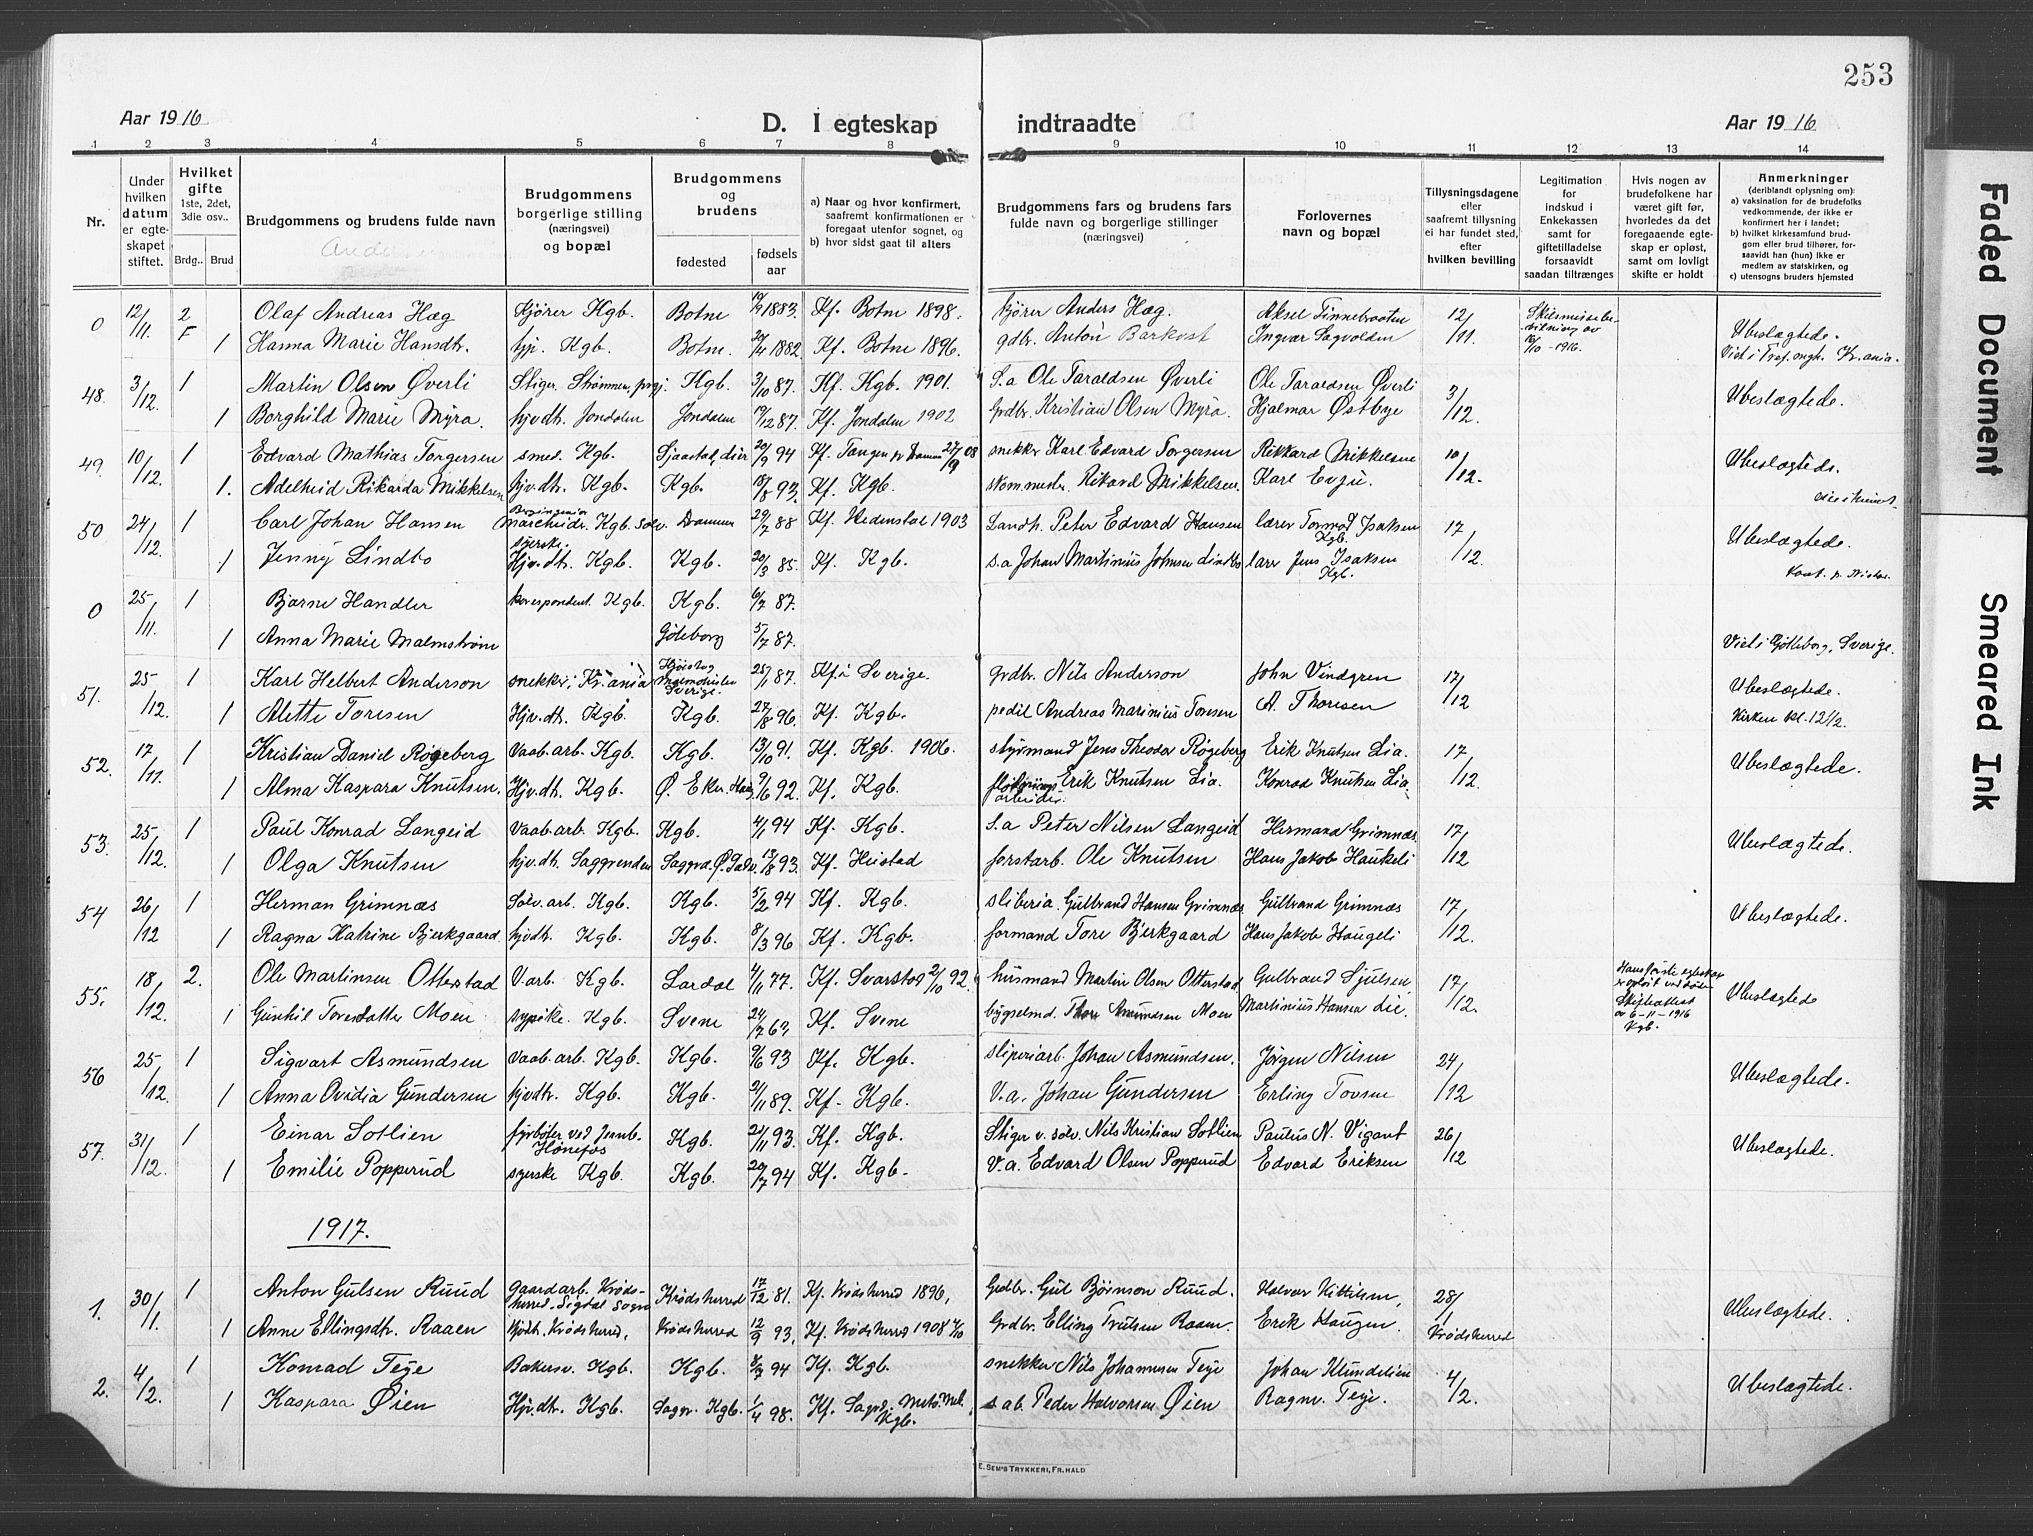 253
Aar 1916 D. I egteskap indtraadte Aar 1916
1 2 3 4 5 6 7 8 9 10 11 12 13 14
Nr.
Under hvilken datum er egteskapet stiftet.
Hvilket gifte 1ste, 2det, 3die osv..
Brdg.. Brud
Brudgommens og brudens fulde navn
Brudgommens borgerlige stilling (næringsvei) og bopæl
Brudgommens og brudens
fødested
fødselsaar
a) Naar og hvor konfirmert, saafremt konfirmationen er foregaat utenfor sognet, og
b) hvor sidst gaat til alters
Brudgommens fars og brudens fars fulde navn og borgerlige stillinger (næringsvei)
Forlovernes navn og bopæl
Tillysningsdagene eller saafremt tillysning ei har fundet sted, efter hvilken bevilling
Legitimation for indskud i Enkekassen samt for giftetilladelse forsaavidt saadan tiltrænges
Hvis nogen av brudefolkene har været gift før, hvorledes da det foregaaende egteskap er opløst, samt om lovligt skifte er holdt
Anmerkninger (deriblandt oplysning om): a) vaksination for de brudefolks vedkommende, der ikke er konfirmert her i landet; b) hvilket kirkesamfund brudgom eller brud tilhører, forsaavidt han (hun) ikke er medlem av statskirken, og c) utensogns bruders hjemsted
0 12/11. 2 F Olaf Andreas Hæg Kjører Kgb. Botne 1883. Kf. Botne 1898. kjører Anders Hæg. Aksel Tinnebraaten 12/11.
1 Hanna Marie Hansdtr. hjv. Kgb. Botne. 1882. Kf. Botne 1896. gdbr. Anton Barkost Ingvar Sagvolden 1916. Ubeslægtede.
48. 3/12. 1 Martin Olsen Øverli Stiger Kgb. 3/10 87. Kf. Kgb. 1901. S.a Ole Taraldsen Øverli Ole Taraldsen Øverli 3/12.
1 Borghild Marie Myra. hjv.dtr. Jondalen Jondalen 12 87. Kf. Jondalen 1902 Grdbr. Kristian Olsen Myra. Hjalmar Østbye Ubeslægtede.
49. 10/12. 1 Edvard Mathias Torgersen smed. Kgb. 20/9 94 Kf. Tangen pr Dramm 27/9 08 snekkr Karl Edvard Torgersen Rikkard Mikkelsen 10/12.
1. Adelheid Rikarda Mikkelsen hjv.dtr. Kgb. Kgb. 8 93. Kf. Kgb. skom.mester. Rikard Mikkelsen. Karl Evju. Ubeslægtede.
50 24/12. 1 Carl Johan Hansen Kgb. Sølv. Drammen 29/7 88 Kf. Hedenstad 1903 Landh. Peter Edvard Hansen lærer Tormod Isaksen Kgb. 17/12.
1 Jenny Lindbo syerske. Hjv.dtr. Kgb. Kgb. 20/3 85. Kf. Kgb. s.a Johan Martinius Johnsen Lindbo lærer Jens Isaksen Kgb. Ubeslægtede.
0 25/11. 1 Bjarne Handler korespondent. Kgb. Kgb. 6/7 87.
1 Anna Marie Malmstrøm Göteborg 5/7 87. Viet i Göteborg, Sverige.
51. 25/12. 1 Karl Helbert Anderson snekkr, Kr.ania Sverige. 25/1 87. Kf. i Sverige. grdbr. Nils Anderson John Vindgren 17/12
1 Alette Toresen Hjv.dtr. Kgb. Kgb. 27/8 96. Kf. Kgb. pedel Andreas Marinius Toresen A. Thoresen Ubeslægtede. Kirken kl. 12½.
52. 17/11. 1 Kristian Daniel Røgeberg Vaab.arb. Kgb. Kgb. 13/10 91. Kf. Kgb. 1906. styrmand Jens Theodor Røgeberg Erik Knutsen Lia. 17/12.
1 Alma Kaspara Knutsen. Hjv.dtr. Kgb. Ø. Eker. 9/6 92. Kf. Kgb. fløtningsarbeider. Erik Knutsen Lia. Konrad Knutsen Lia Ubeslægtede.
53. 25/12. 1 Paul Konrad Langeid Vaab.arb. Kgb. Kgb. 4/1 94 Kf. Kgb. S.a Peter Nilsen Langeid Hermand Grimnæs 17/12
1 Olga Knutsen hjv.dtr. Saggrenden 13/8 93. Kf. Heistad forstarb. Ole Knutsen Hans Jakob Haukeli Ubeslægtede.
54 26/12 1 Herman Grimnæs Sølv.arb. Kgb. Kgb. 5/2 94 Kf. Kgb. sliberia. Gulbrand Hansen Grimnæs Gulbrand Grimnæs 17/12.
1 Ragna Katrine Bjerkgaard hjvdtr. Kgb. Kgb. 8/3 96 Kf. Kgb. formand Tore Bjerkgaard Hans Jakob Haugeli Ubeslægtede.
55. 18/12. 2. Ole Martinsen Otterstad V.arb. Kgb. Lardal 4/11 77. Kf. Svarstad 2/10 92. husmand Martin Olsen Otterstad Gulbrand Sjulsen, 17/12.
1 Gunhil Toresdatter Moen sypike. Kgb. Svene 24/7 67. Kf. Svene bygselmd. Thor Amundsen Moen Martinius Hansen Lie. Skifteattest av 6-11-1916 Kgb. Ubeslægtede
56 25/12. 1 Sigvart Asmundsen Vaab.arb. Kgb. Kgb. 9/6 93 Kf. Kgb. sliperiarb. Johan Asmundsen. Jørgen Nilsen 24/12
1 Anna Ovidia Gundersen hjvdtr. Kgb. Kgb. 21/11 89. Kf. Kgb. V.a. Johan Gundersen Erling Tovsen Ubeslægtede.
57. 31/12. 1 Einar Sotlien fyrbøter ved Jernb. Hønefos Kgb. 11 93. Kf. Kgb. Stiger v. sølv. Nils Kristian Sotlien Paulus N. Vigant 26/12
1 Emilie Popperud syerske Kgb. Kgb. 20/7 94 Kf. Kgb. V.a. Edvard Olsen Popperud Edvard Eriksen Ubeslægtede.
1917.
1. 30/1. 1 Anton Gulsen Ruud Gaardarb. Krødsherred. Sigdal Sogn Krødsherred 17/12 81. Kf. Krødsherred 1896, Grdbr. Gul Bjørnson Ruud. Halvor Kittilsen, 28/1 Krødsherred
1 Anne Ellingsdtr. Raaen hjvdtr. Krødsherred, Krødsherred 12/9 93, Kf. Krødsherred 1908 4/10 Grdbr. Elling Trulsen Raaen. Erik Haugen. Ubeslægtede.
2. 4/2. 1 Konrad Teje Bakersv. Kgb. Kgb. 3/7 94 Kf. Kgb. snekker Nils Johannesen Teje Johan Klundelien 4/2.
1 Kaspara Øien Hjv.dtr. Kgb. Saggr. Kgb. 1/4 98. Kf. Sagr. Kgb. s ab. Peder Halvorsen Øien Ragnv. Teje. Ubeslægtede.
E. SEM'S TRYKKERI, FR.HALD
Faded Document
Smeared Ink